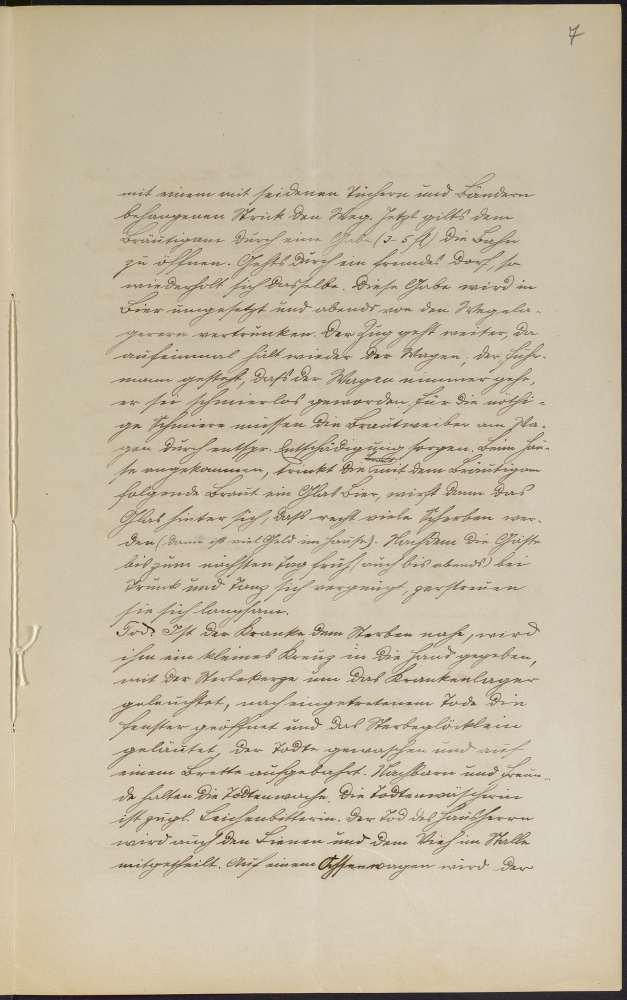 7
mit einem mit seidenen Tüchern und Bändern
behangenen Strick den Weg. Jetzt gilts dem
Bräutigam durch eine Gabe (3-5 fl) die Bahn
zu öffnen. Gehts durch ein fremdes Dorf, so
wiederholt sich dasselbe. Diese Gabe wird in
Bier umgesetzt und abends von den Wegela-
gerern vertrunken. Der Zug geht weiter, da
aufeinmal hält wieder der Wagen, der Fuhr-
mann gesteht, daß der Wagen nimmer gehe,
er sei schmierlos geworden, für die nöthi-
ge Schmiere müssen die Brautweiber am Wa-
gen durch entspr. Entschädigung sorgen. Beim Hau-
se angekommen, trinkt die mit dem Bräutigam
folgende Braut ein Glas Bier, wirft dann das
Glas hinter sich, daß recht viele Scherben wer-
den (dann ist viel Geld im Hause). Nachdem die Gäste
bis zum nächsten Tag früh (auch bis abends) bei
Trunk und Tanz sich vergnügt, zerstreuen
sie sich langsam.
Tod: Ist der Kranke dem Sterben nahe, wird
ihm ein kleines Kreuz in die Hand gegeben,
mit der Sterbekerze um das Krankenlager
geleuchtet, nach eingetretenem Tode die
Fenster geöffnet und das Sterbeglöcklein
geläutet, der Todte gewaschen und auf
einem Brette aufgebahrt. Nachbarn und Freun-
de halten die Todtenwache. Die Todtenwäscherin
ist zugl. Leichenbitterin. Der Tod des Hausherrn
wird auch den Bienen und dem Vieh im Stalle
mitgetheilt. Auf einem Ochsenwagen wird der